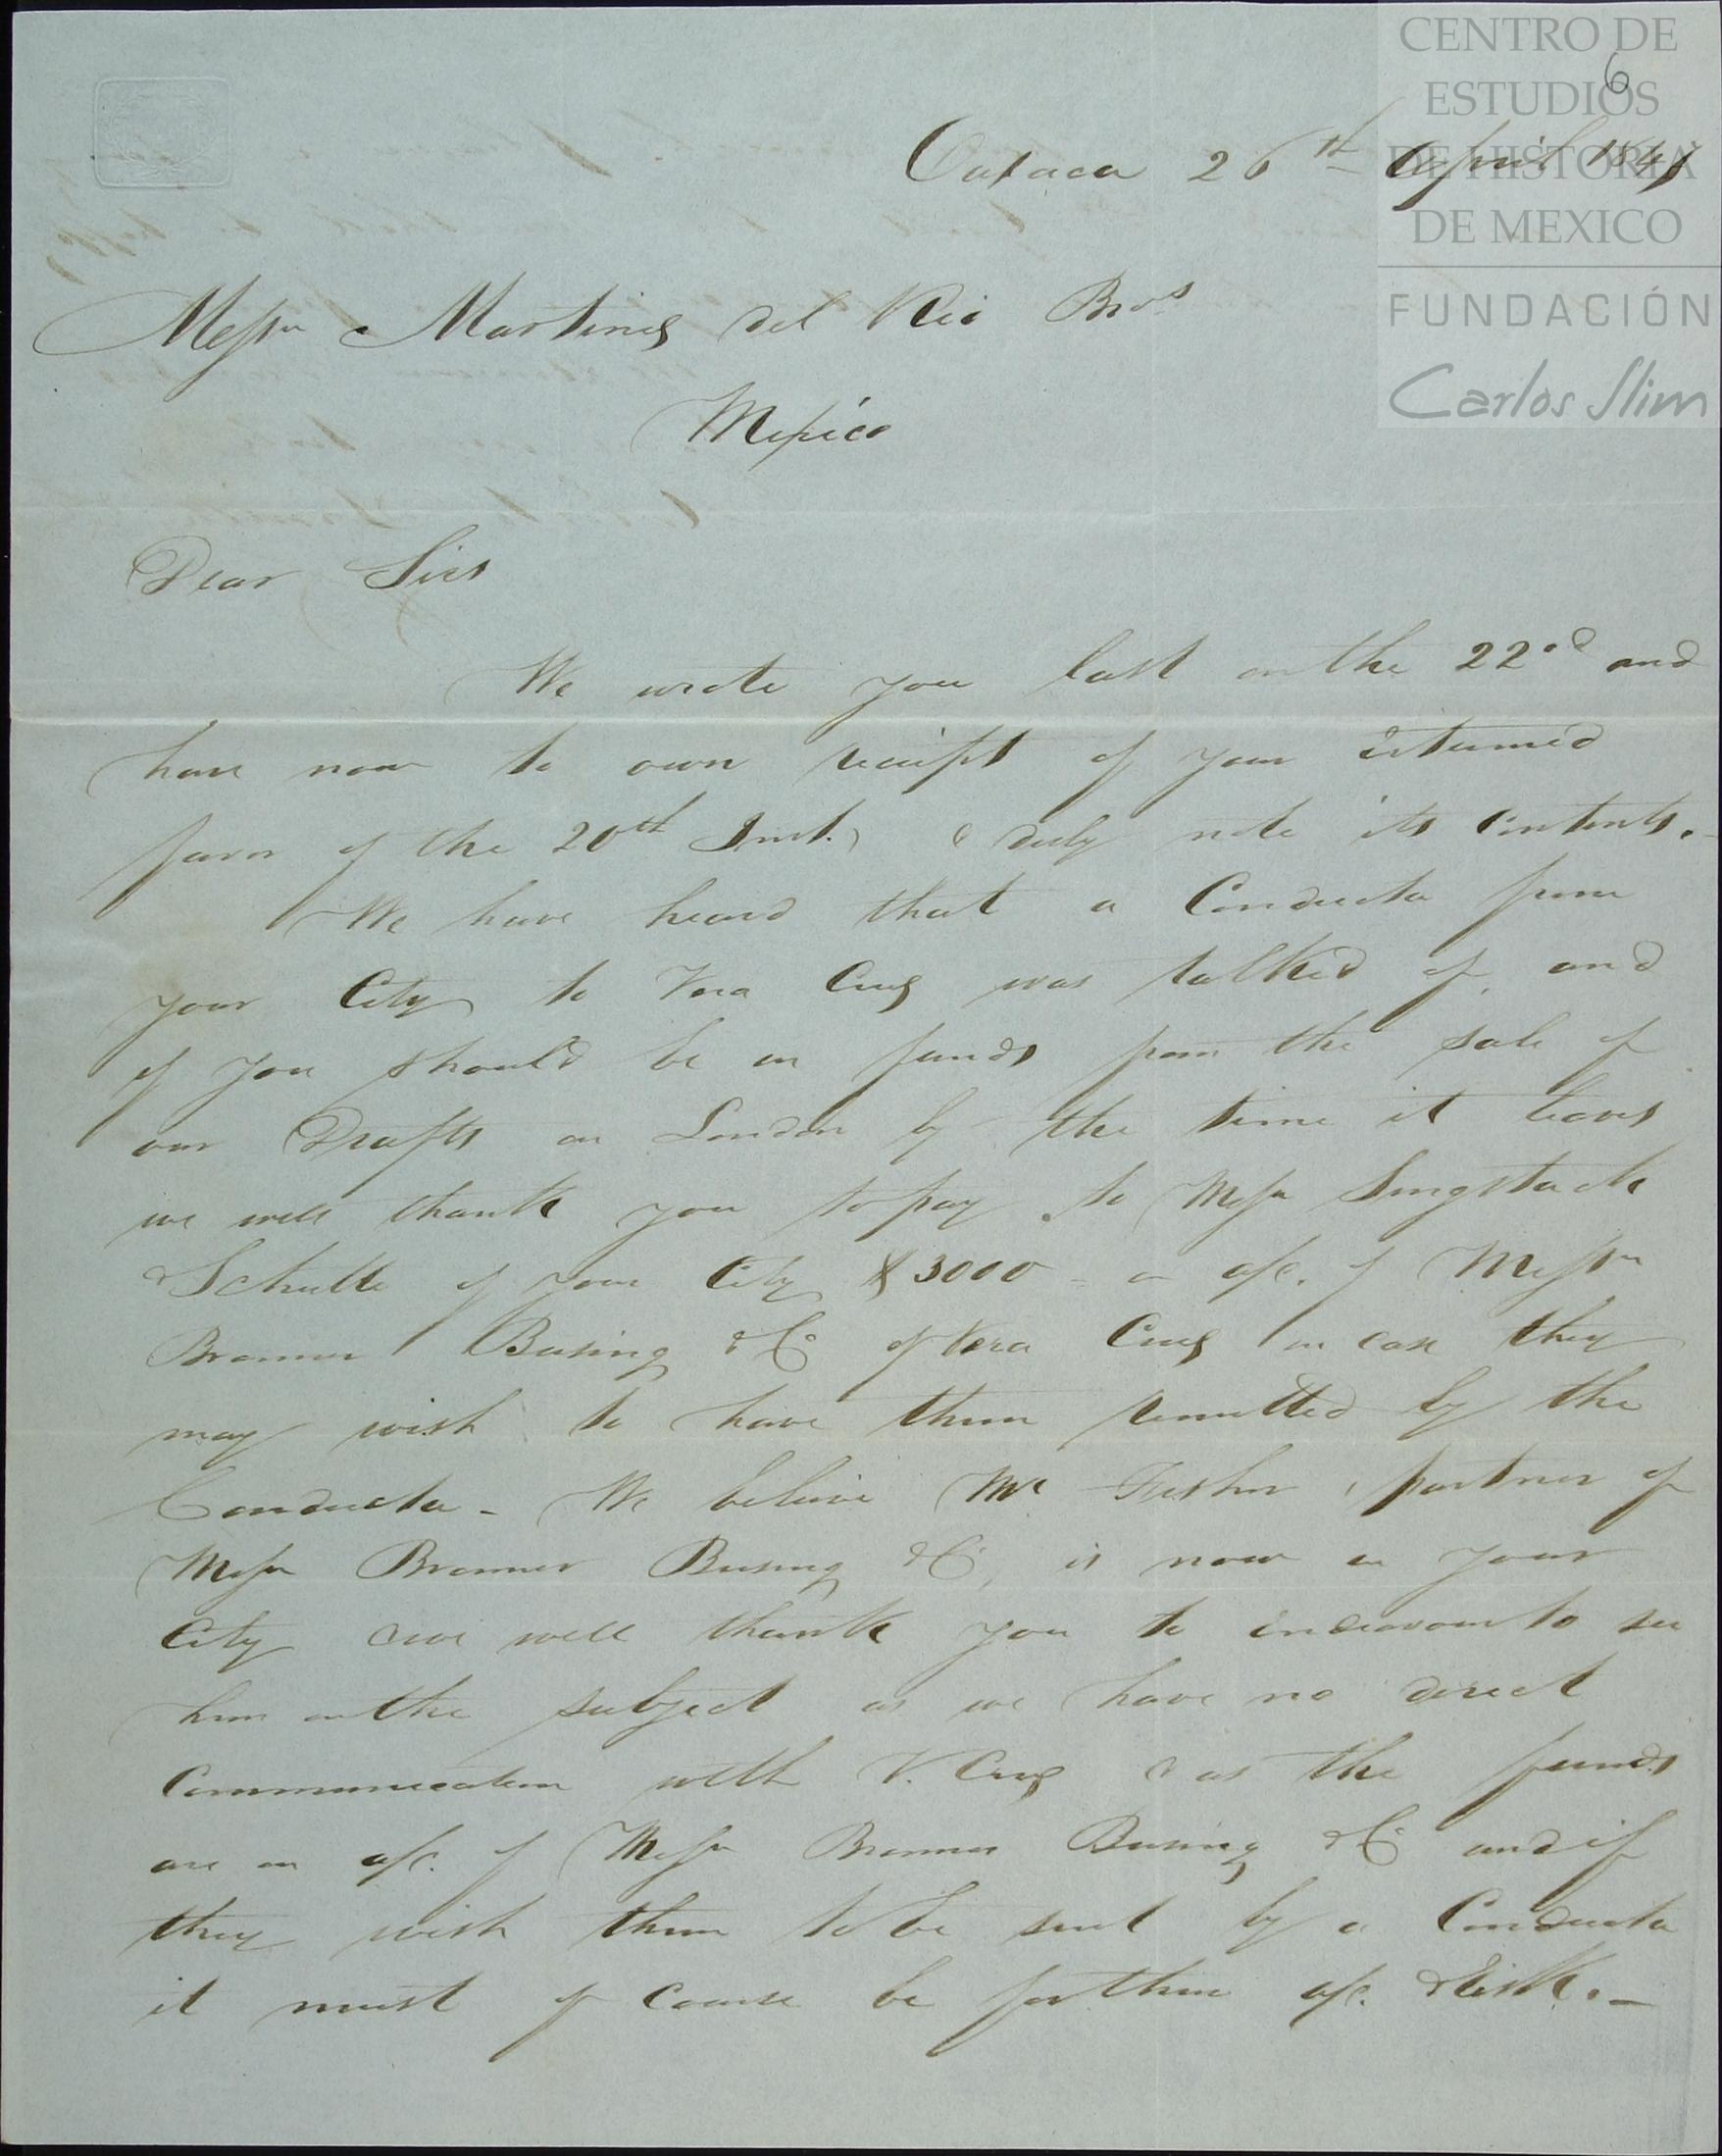 CENTRO DE
ESTUDIOS
DE HISTORIA
DE MEXICO
FUNDACIÓN
Carlos Slim
6
Oaxaca 26th April
Messrs Martinez del Rio Bros
Mexico
Dear Sirs
We wrote you last on the 22nd and
have now to own receipt of your esteemed
favor of the 20th Inst., & duly note its contents.-
We have heard that a Conducta from
your City to Vera Cruz was talked of, and
if you should be in funds from the sale of
our Drafts on London by the time it leaves
we will thank you to pay to Messrs
Schutte of your City $3000 - on a/c. of Messrs
Brommer Busing & Co of Vera Cruz in case they
may wish to have them remitted by the
Conducta - We believe Mr , partner of
Messrs Brommer Busing & Co, is now in your
City & we will thank you to endeavour to see
him on the subject as we have no direct
Communication with V. Cruz & as the funds
are on a/c. of Messrs Brommer Busing & Co and if
they wish them to be sent by a Conducta
it must of course be for their a/c. & Risk.-